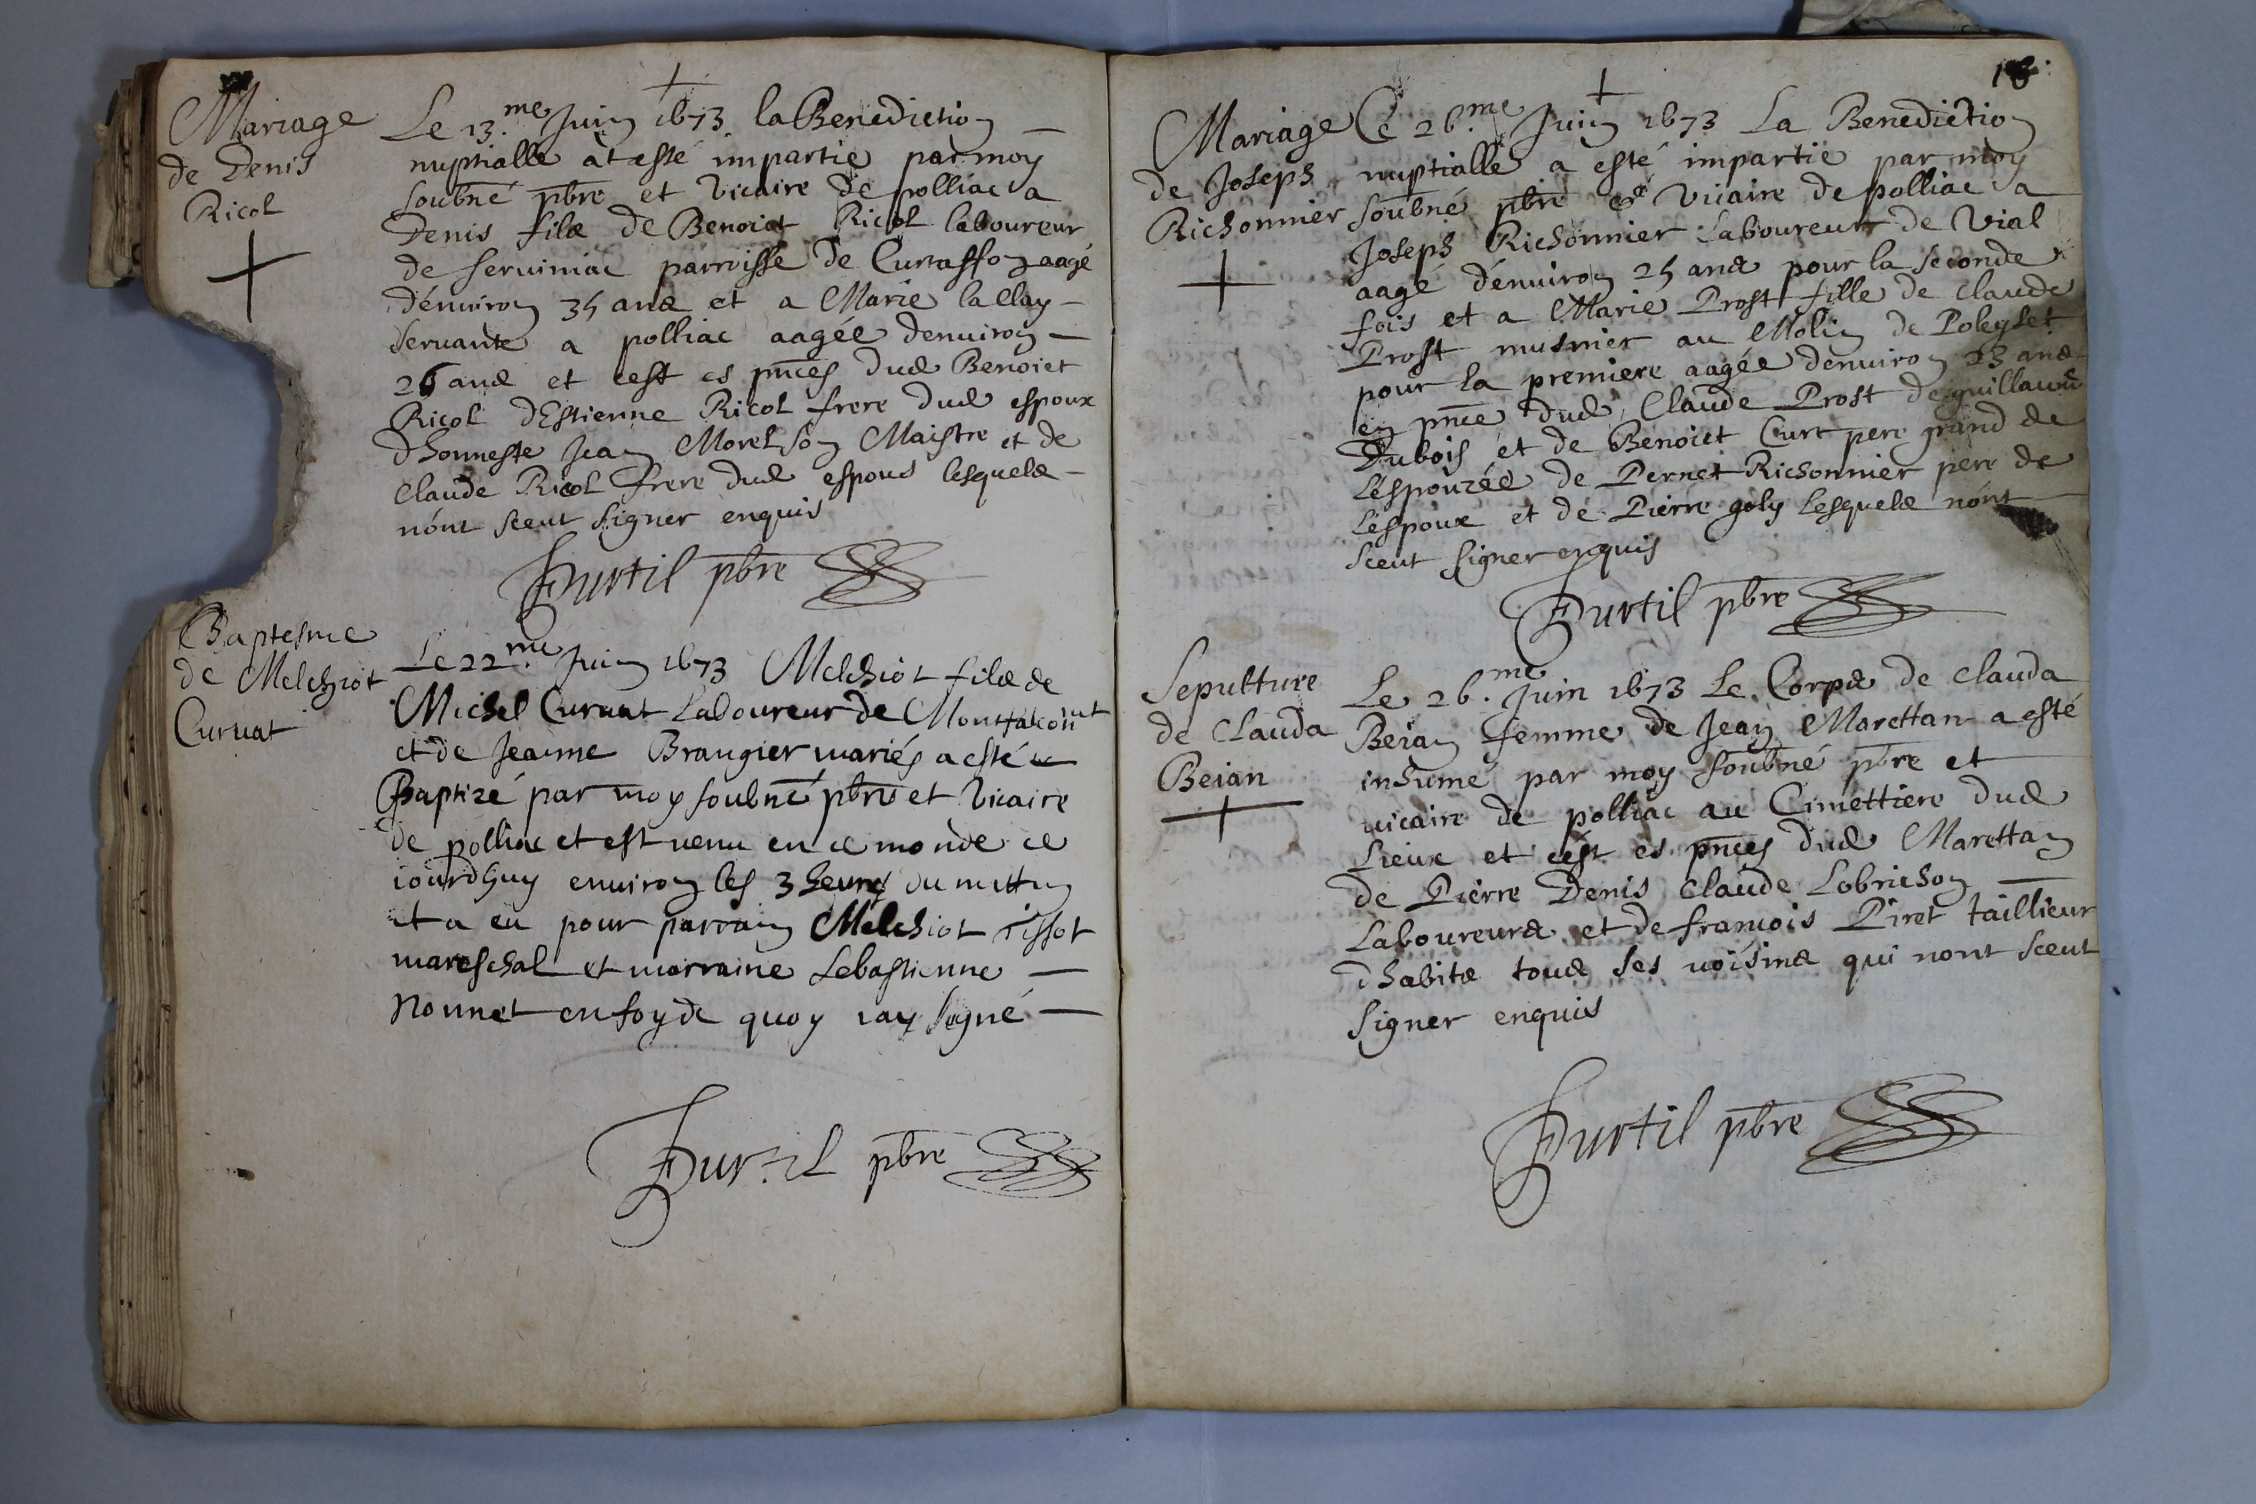 Mariage
de Denis
Ricol
Le 13.me Juin 1673 la Benediction
nuptialle at esté impartie par moy
soubné pbre et vicaire de polliac a
Denis filz de Benoict Ricol laboureur
de serviniac parroisse de Curtasson aagé
d'environ 35 ans et a Marie la Clay
servante a polliac aagée denviron
26 ans et cest es pnces dud Benoict
Ricol d'Estienne Ricol frere dud espoux
d'honneste Jean Morel son Maistre et de
Claude Ricol frere dud espous lesquels
n'ont sceut signer enquis
Durtil pbre
Baptesme
de Melchiot
Curvat
Le 22.me Juin 1673 Melchiot filz de
Michel Curvat Laboureur de Montfalconnt
et de Jeanne Brangier mariés a esté
Baptizé par moy soubné pbre et vicaire
de polliac et est venu en ce monde ce
iourdhuy environ les 3 heures du mattin
et a eu pour parrain Melchiot Tissot
mareschal et marraine Sebastienne
Nonnet en foy de quoy iay signé
Durtil pbre
18.
Mariage
de Joseph
Richonnier
Ce 26.me Juin 1673 La Benediction
nuptialle a esté impartie par moy
soubné pbre et vicaire de polliac a
Joseph Richonnier Laboureur de Vial
aagé d'environ 25 ans pour la seconde
fois et a Marie Prost fille de Claude
Prost musnier au Molin de Poleyset
pour la premiere aagée denviron 23 ans
en pnce dud Claude Prost de guillaume
Dubois et de Benoict Curt pere grand de
l'espouzée de Pernet Richonnier pere de
l'espoux et de Pierre goly Lesquels n'ont
sceut signer enquis
Durtil pbre
Sepulture
de Clauda
Beian
Le 26.me Juin 1673 Le Corps de Clauda
Beian femme de Jean Marettan a esté
inhumé par moy soubné pbre et
vicaire de polliac au Cimettiere dud
Lieux et c'est es pnces dud Marettan
de Pierre Denis Claude Lobrichon
Laboureurs et de francois Piret taillieur
dhabits tous ses voisins qui nont sceut
signer enquis
Durtil pbre